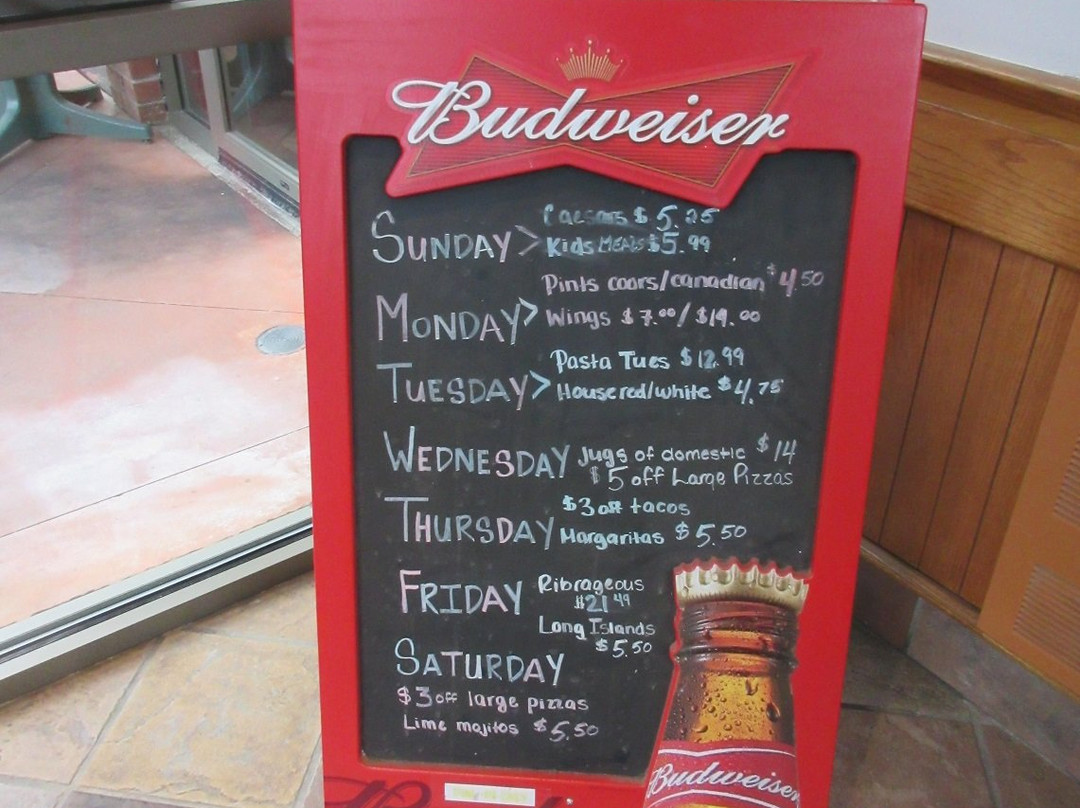 Budweiser
SUNDAY > Caesars $5.25
Kids MEALS $5.99
Pints coors/canadian $4.50
MONDAY > Wings $7.00/$14.00
Pasta Tues $12.99
TUESDAY > House red/white $4.75
WEDNESDAY Jugs of domestic $14
$5 off Large Pizzas
$3 off tacos
THURSDAY Margaritas $5.50
FRIDAY Ribrageous
$21.49
Long Islands
$5.50
SATURDAY
$3 off large pizzas
Lime mojitos $5.50
Budweiser